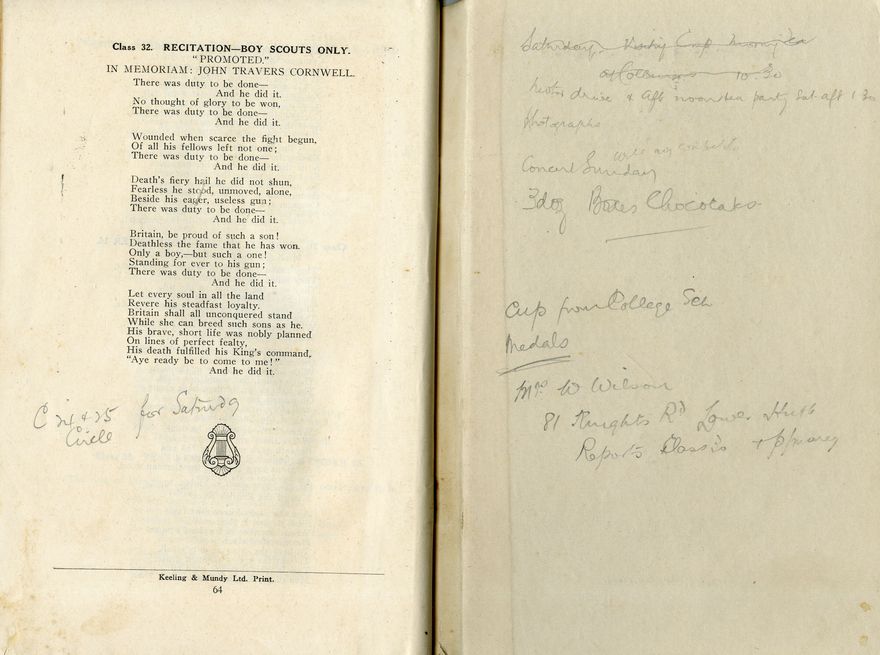 Class 32. RECITATION—BOY SCOUTS ONLY.
"PROMOTED."
IN MEMORIAM: JOHN TRAVERS CORNWELL.
There was duty to be done—
And he did it.
No thought of glory to be won,
There was duty to be done—
And he did it.
Wounded when scarce the fight begun,
Of all his fellows left not one;
There was duty to be done—
And he did it.
Death's fiery hail he did not shun,
Fearless he stood, unmoved, alone,
Beside his eager, useless gun;
There was duty to be done—
And he did it.
Britain, be proud of such a son!
Deathless the fame that he has won.
Only a boy,—but such a one!
Standing for ever to his gun;
There was duty to be done—
And he did it.
Let every soul in all the land
Revere his steadfast loyalty.
Britain shall all unconquered stand
While she can breed such sons as he.
His brave, short life was nobly planned
On lines of perfect fealty,
His death fulfilled his King's command,
"Aye ready be to come to me!"
And he did it.
C 24 & 25 for Saturday
Circle
Keeling & Mundy Ltd. Print.
64
Saturday Visiting Cup morning tea
10.30
Motor drive & aft noon tea party Sat aft 1 30
Photographs
Concert Sunday
3 doz Boxes Chocolates
Cup from College
Medals
Mrs W Wilson
81 Knights Rd Lower Hutt
Reports